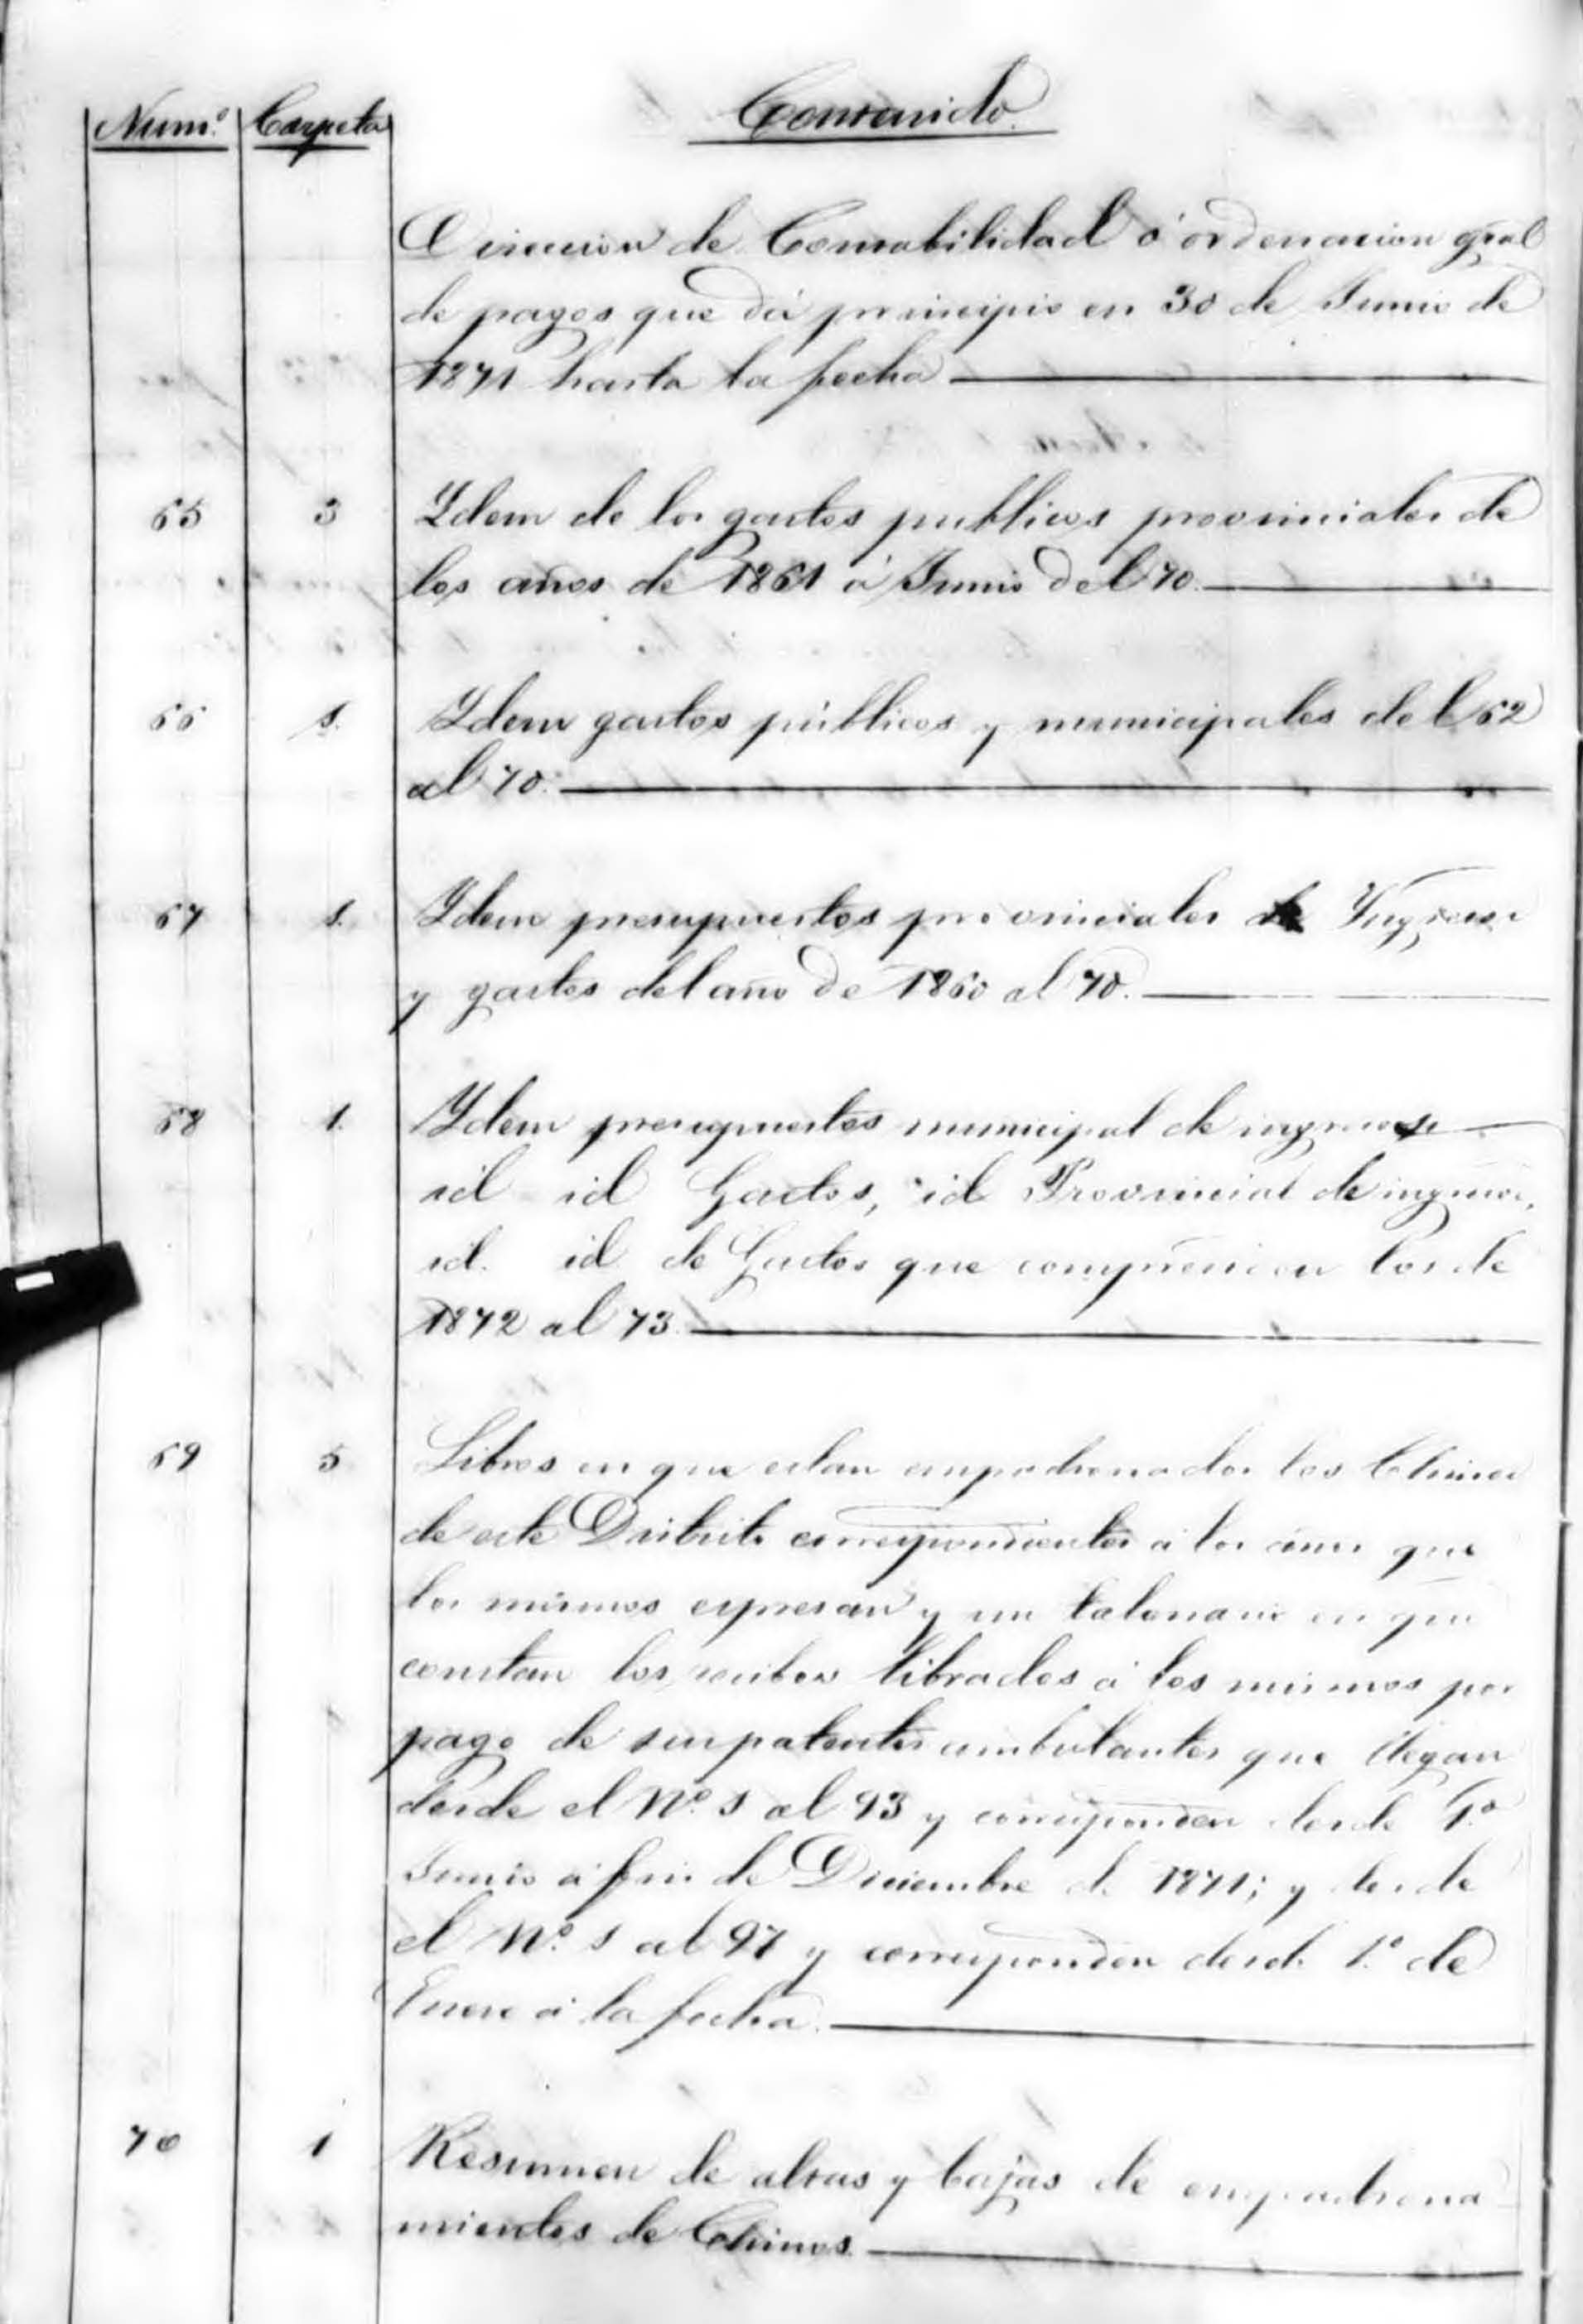 Num.º Carpeta Contenido.
Direccion de Contabilidad ó ordenacion gral
de pagos que dá principio en 30 de Junio de
1871 hasta la fecha
65 3 Ydem de los gastos publicos provinciales de
los años de 1861 á Junio del 70.
66 1. Ydem gastos públicos y municipales del 62
al 70.
67 1. Ydem presupuestos provinciales de Yngresos
y gastos del año de 1860 al 70.
68 1. Ydem presupuestos municipal de ingresos
id id Gastos, id Provincial de ingresos,
id. id de Gastos que comprenden los de
1872 al 73.
69 5 Libros en que estan empadronados los Chinos
de este Distrito correspondientes á los años que
los mismos espresan y un talonario en que
constan los recibos librados á los mismos por
pago de sus patentes ambulantes que llegan
desde el Nº. 1 al 93 y corresponden desde 1º.
Junio á fin de Diciembre de 1871; y desde
el Nº. 1 al 97 y corresponden desde 1.º de
Enero á la fecha.
70 1 Resumen de altas y bajas de empadrona
mientos de Chinos.